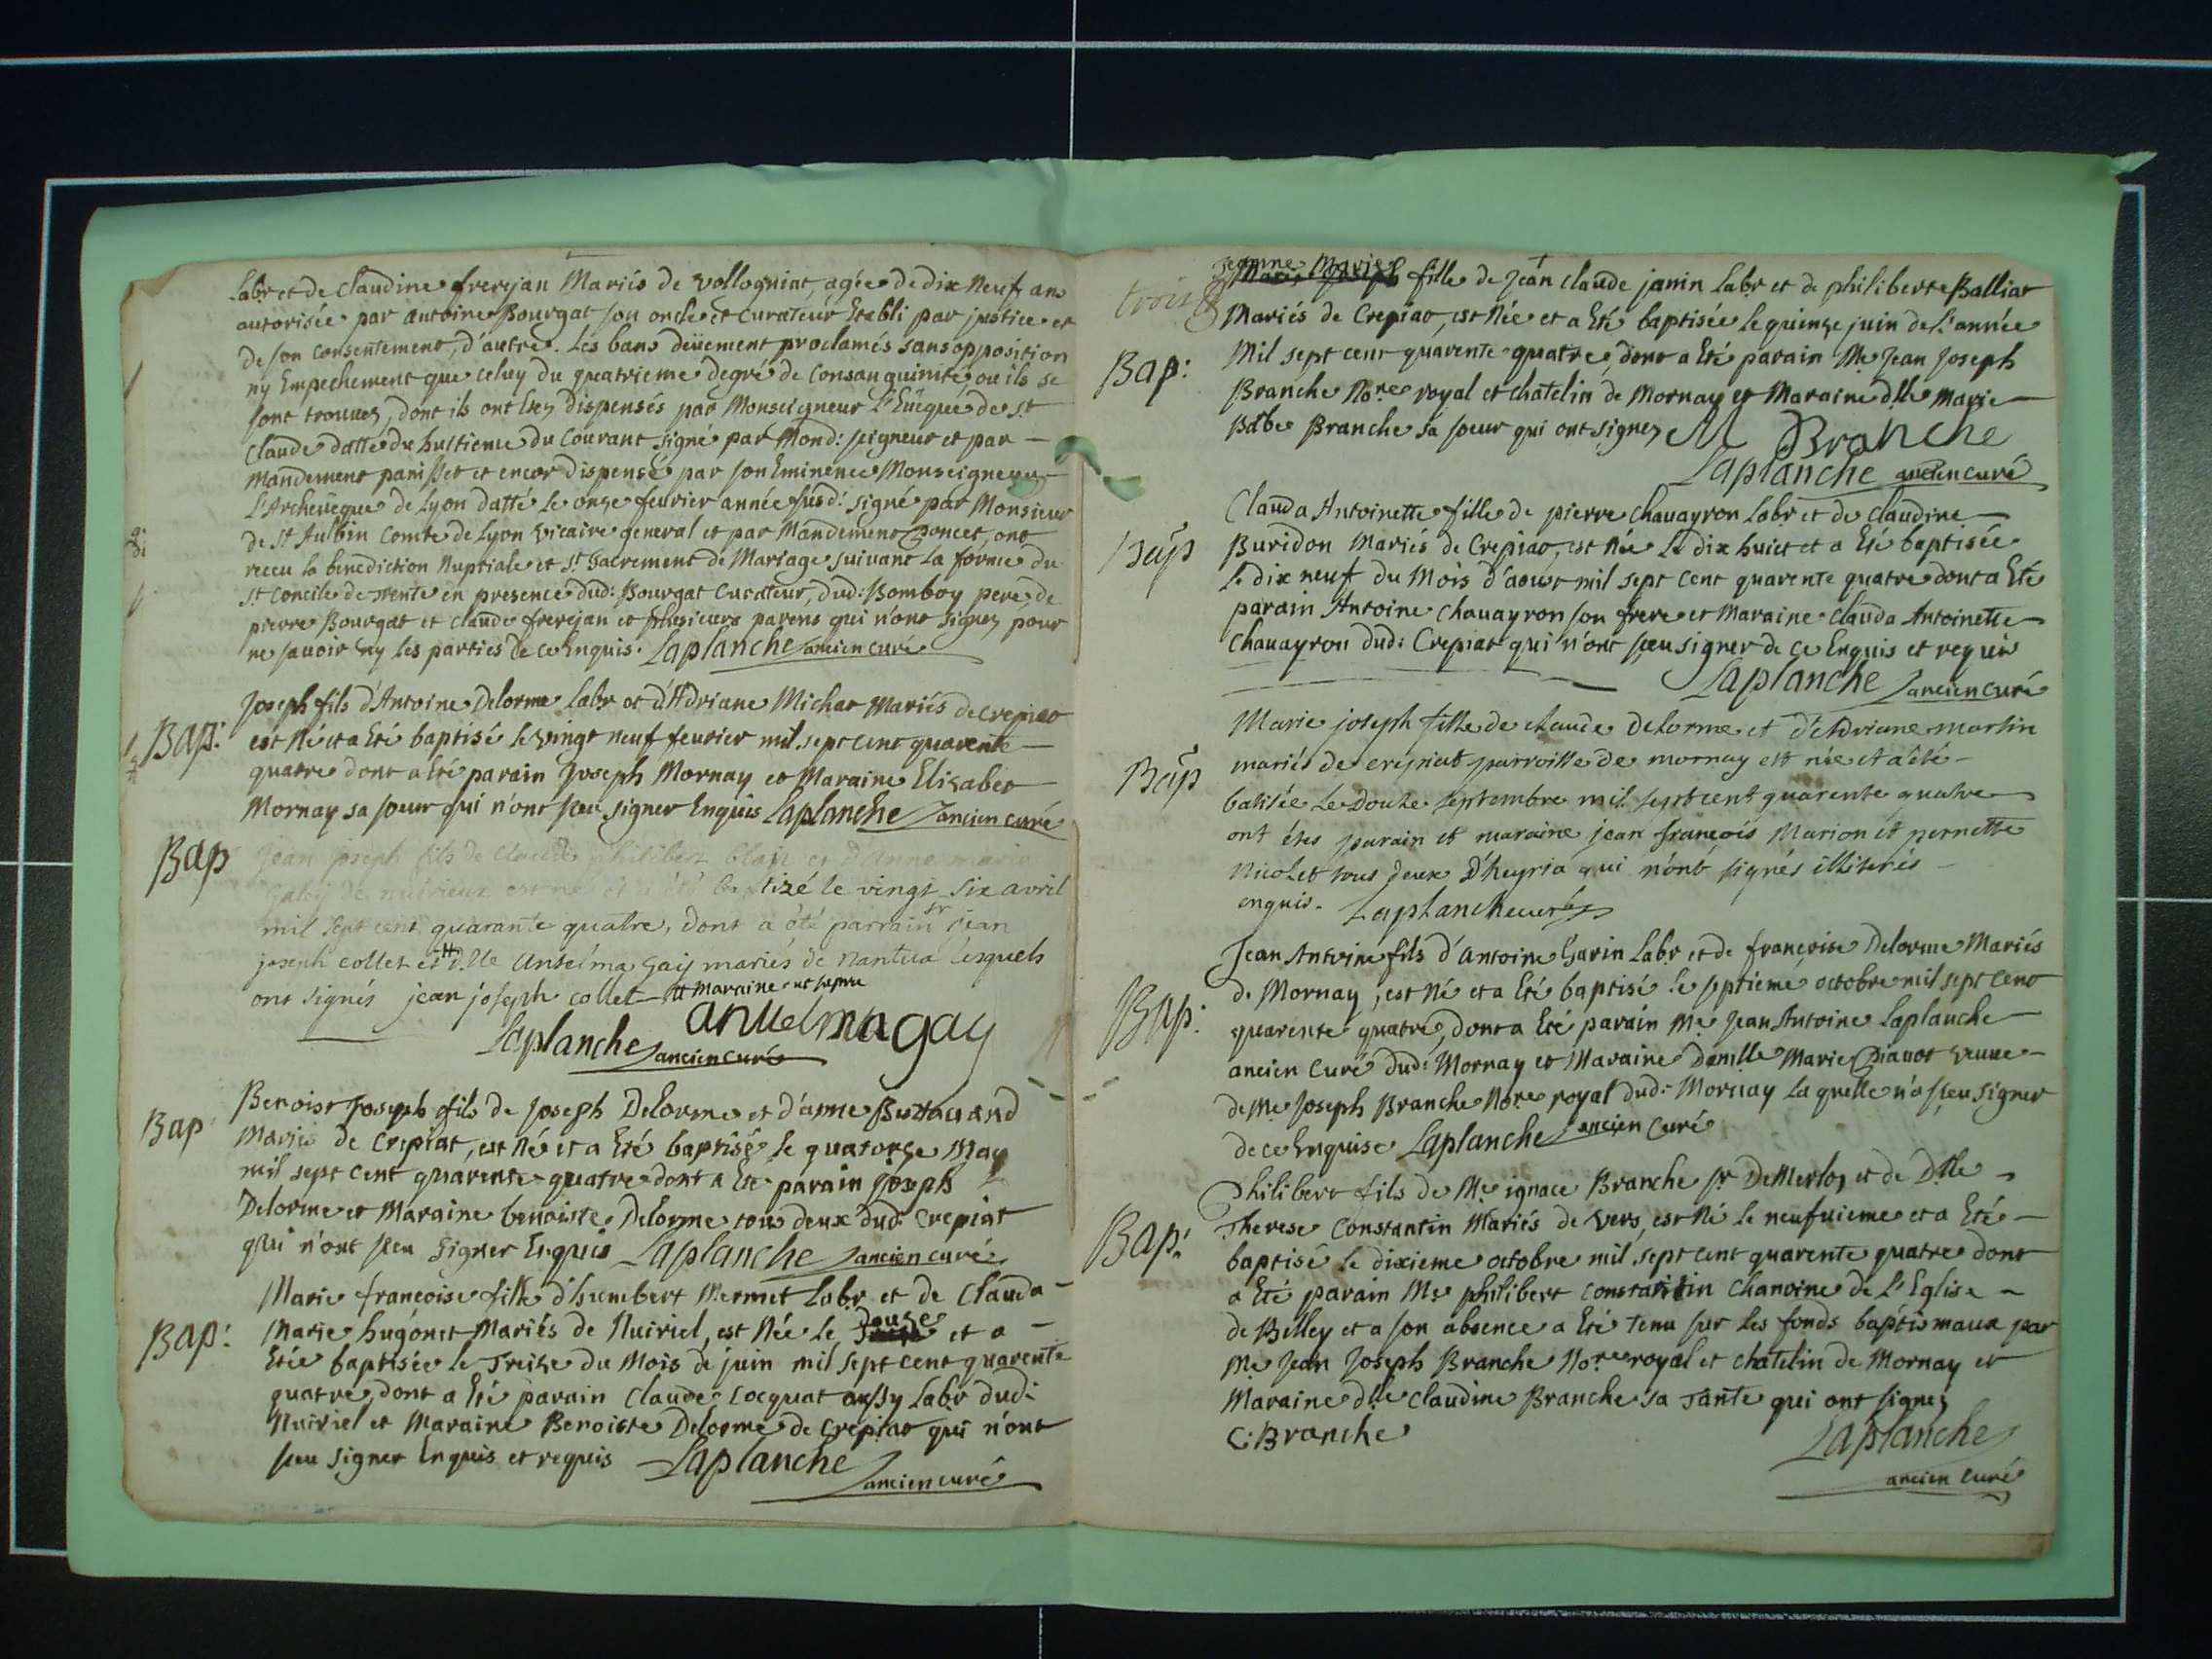 Labr et de Claudine frerejan Mariés de vollogniat, agée de dix neuf ans
autorisée par antoine Bourgat son oncle et Curateur Etabli par justice et
de son consentement, d'autre. Les bans deüement proclamés sans opposition
ny Empechement que celuy du quatrieme degré de Consanguinité ou ils se
sont trouvez, dont ils ont Etez dispensés par Monseigneur L'Euêque de St
Claude datte du huitieme du Courant signé par Mond: seigneur et par –
Mandement panisset et encor dispensé par son Eminence Monseigneur
L'Archeuêque de Lyon datté le onze feurier année susd: signé par Monsieur
de St Aulbin Comte de Lyon vicaire general et par Mandement poncet, ont
receu la benediction Nuptiale et St Sacrement de Mariage suivant la forme du
St Concile de Trente en presence dud: Bourgat Curateur, dud: Bomboy pere, de
pierre Bourgat et claude frerejan et plusieurs parens qui n'ont signez pour
ne savoir ny les parties de ce Enquis. Laplanche ancien curé
Bap: Joseph fils d'Antoine Delorme Labr et d'Adriane Michat Mariés de crepiat
est Né et a Eté baptisé le vingt neuf feurier mil sept cent quarente –
quatre dont a Eté parain Joseph Mornay et Maraine Elizabet
Mornay sa soeur qui n'ont sceu signer Enquis Laplanche ancien curé
Bap Jean joseph fils de Claude philibert blain et d'anne marie
de nurieux est né et a été baptizé le vingt six avril
mil sept cent quarante quatre, dont a été parrain sr jean
joseph collet et # d.lle Anselma Gay mariés de Nantua lesquels
ont signés jean joseph collet # Maraine
anselma gay
Laplanche ancien curé
Bap: Benoist Joseph fils de Joseph Delorme et d'anne Bertacand
Mariés de Crepiat, est Né et a Eté baptisé le quatorze May
mil sept cent quarente quatre dont a Eté parain joseph
Delorme et Maraine benoiste Delorme tous deux dud: Crepiat
qui n'ont sceu signer Enquis Laplanche ancien curé
Marie françoise fille d'humbert Mermet Labr et de Clauda –
Bap: Marie hugonet Mariés de Nuiriel, est Née le Douze et a –
Etée baptisée le Treize du Mois de juin mil sept cent quarente
quatre dont a Eté parain Claude Cocquat aussy Labr dud:
Nuiriel et Maraine Benoiste Delorme de Crepiat qui n'ont
sceu signer Enquis et requis Laplanche
ancien curé
Jeanne Marie
trois Marie Joseph fille de Jean claude janin Labr et de philiberte Balliat
Mariés de Crepiat, est Née et a Eté baptisée le quinze juin de l'année
Bap: Mil sept cent quarente quatre, dont a Eté parain Me Jean Joseph
Branche No.re royal et chatelin de Mornay et Maraine dlle Marie –
Babe Branche sa soeur qui ont signez M Branche
Laplanche ancien curé
Clauda Antoinette fille de pierre Chauayron Labr et de claudine –
Bap Buridon Mariés de Crepiat, est Née le dix huict et a Eté baptisée
le dix neuf du Mois d'aoust mil sept cent quarente quatre dont a Eté
parain Antoine Chauayron son frere et Maraine Clauda Antoinette
Chauayron dud: Crepiat qui n'ont sceu signer de ce Enquis et requis
Laplanche ancien curé
Marie joseph fille de claude Delorme et d'Adriane martin
Bap mariés de crepiat parroisse de mornay est née et a êté –
batisée Le Douze septembre mil sept cent quarente quatre
ont étes parain et maraine jean françois Marion et pernette
Nicolet tous deux D'heyria qui n'ont signés illiterés –
enquis. Laplanche curé
Jean Antoine fils d'Antoine Garin Labr et de françoise Delorme Mariés
Bap: de Mornay, est Né et a Eté baptisé le septieme octobre mil sept cent
quarente quatre, dont a Eté parain Me Jean Antoine Laplanche –
ancien Curé dud: Mornay et Maraine Damlle Marie pianot veuue –
de Me Joseph Branche Nore royal dud: Mornay La quelle n'a sceu signer
de ce Enquise Laplanche ancien Curé
Philibert fils de Me ignace Branche sr DeMerloz et de Dlle –
Bap: Therese Constantin Mariés de vers, est Né le neufuieme et a Eté –
baptisé le dixieme octobre mil sept cent quarente quatre dont
a Eté parain Mre philibert Constantin Chanoine de L'Eglise –
de Belley et a son absence a Eté tenu sur les fonds baptismaux par
Me Jean Joseph Branche No.re royal et chatelin de Mornay et
Maraine dlle Claudine Branche sa Tante qui ont signez
C: Branche
Laplanche
ancien curé